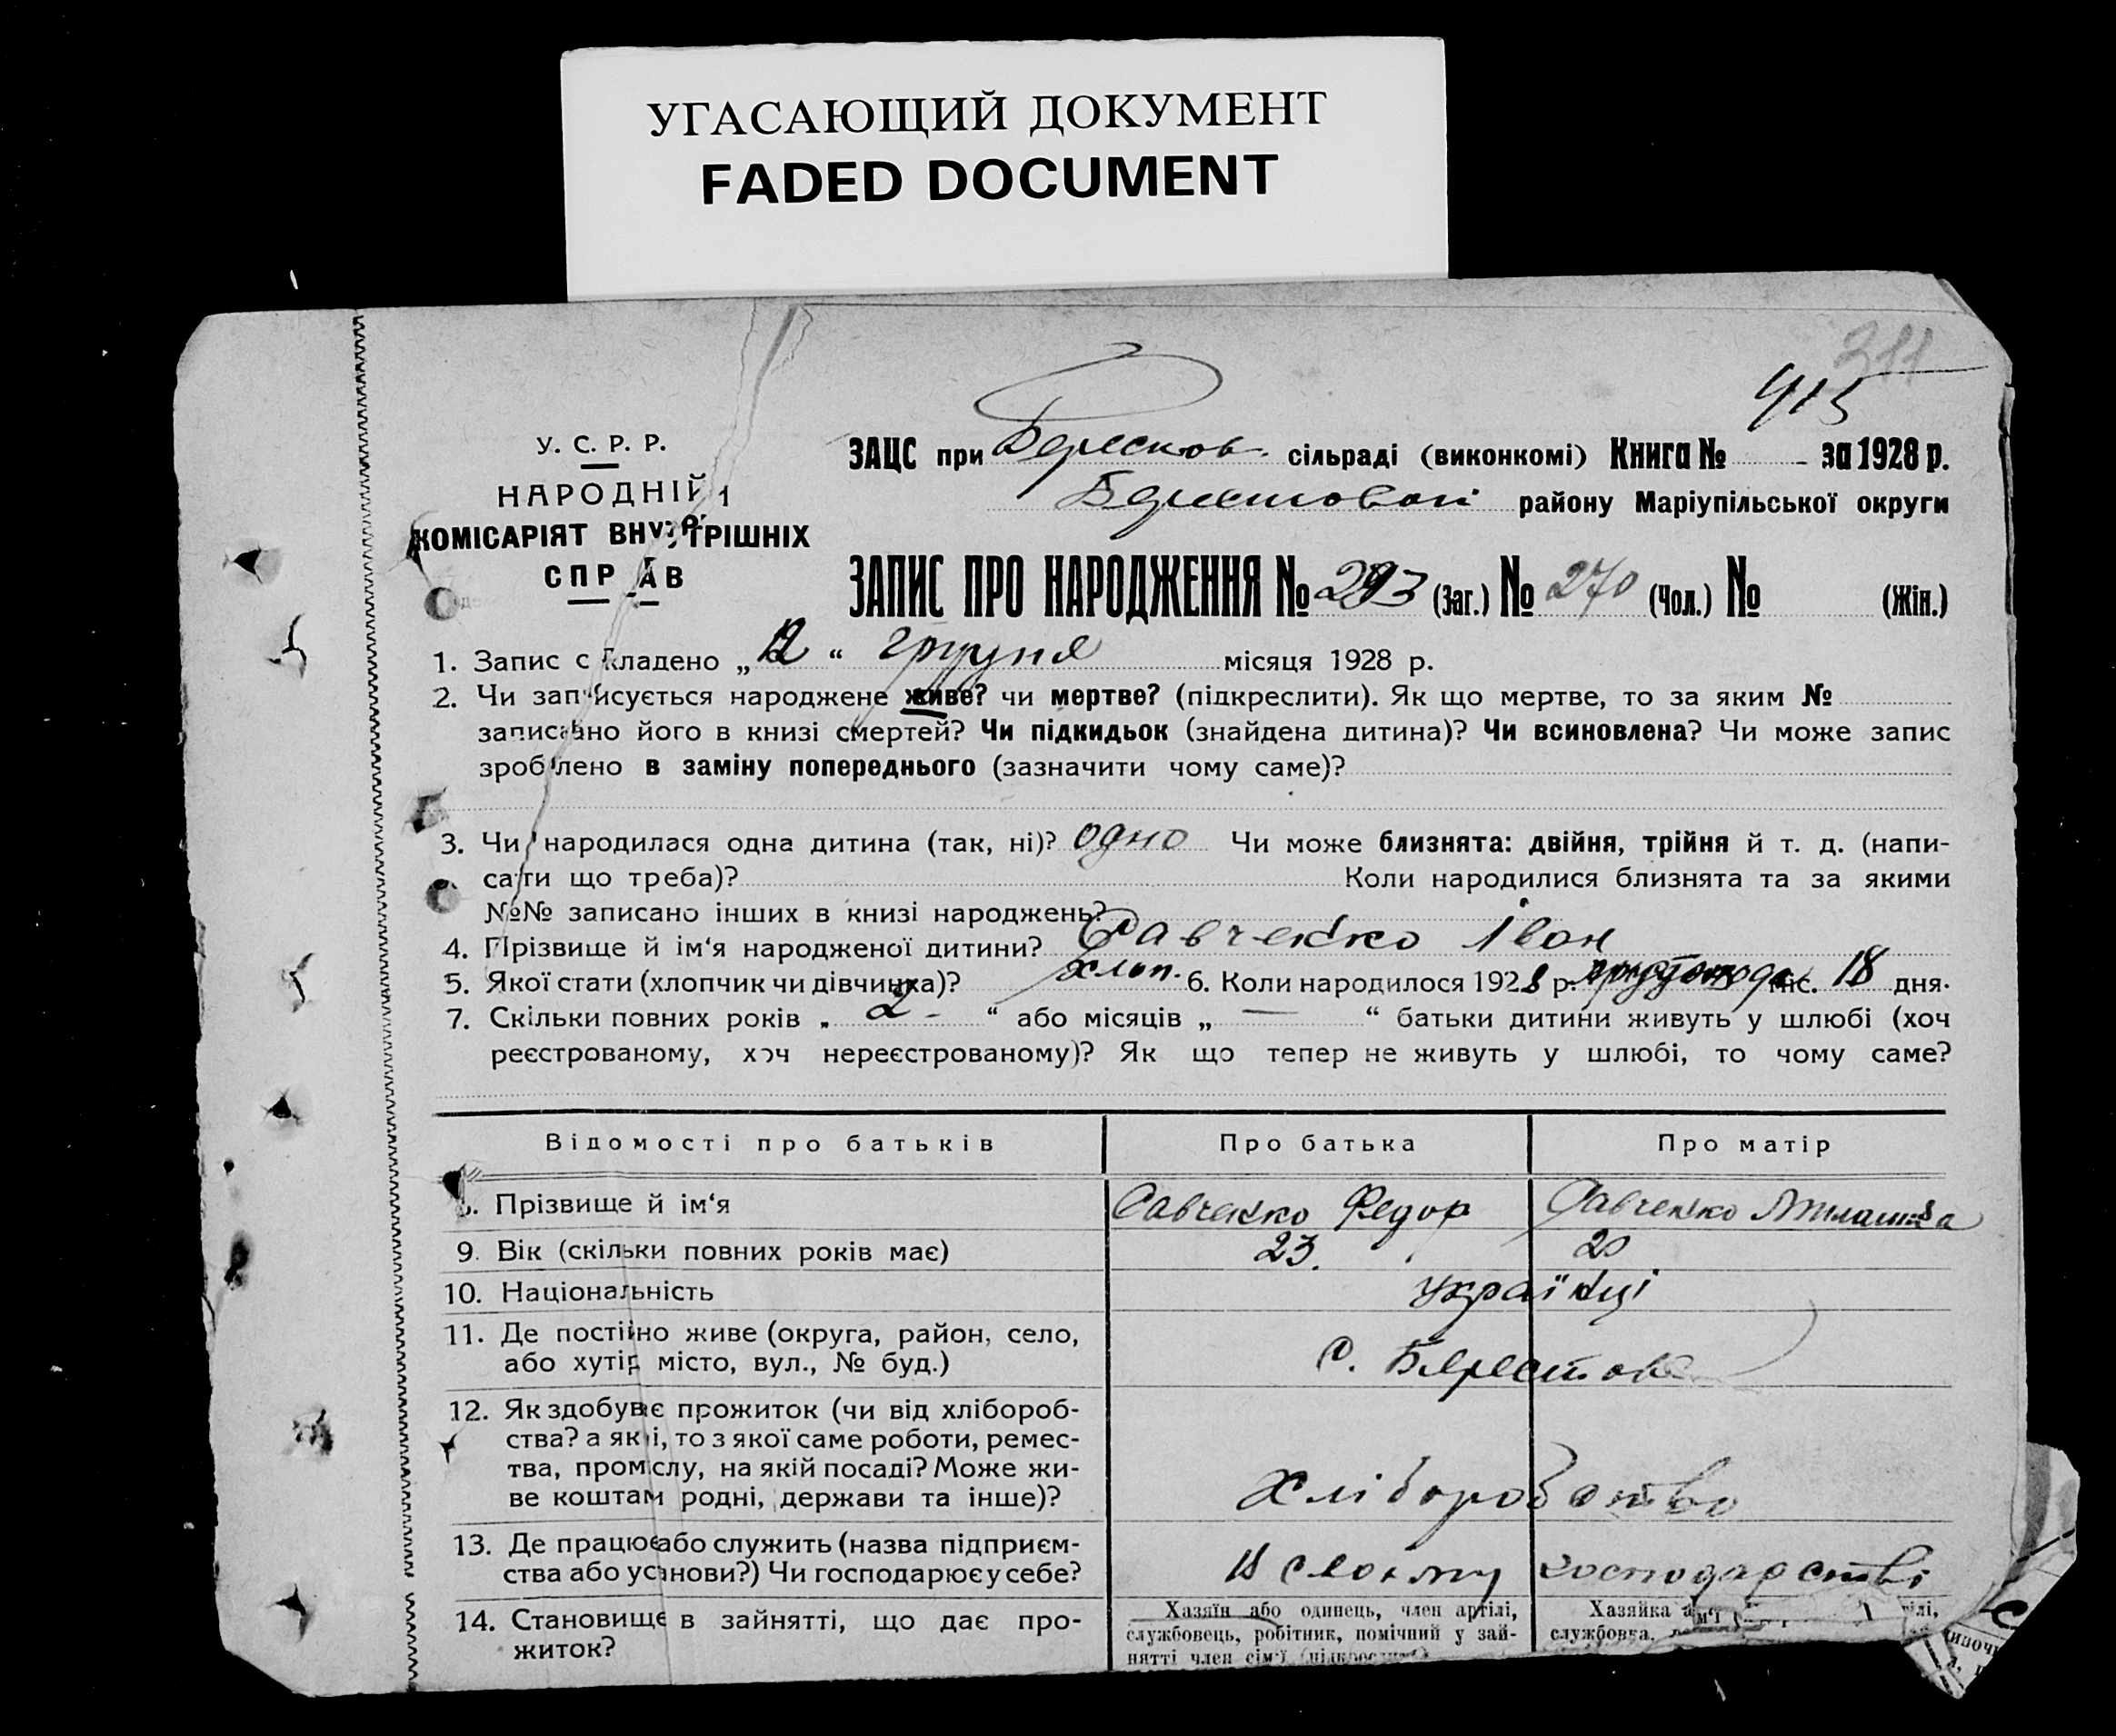 УГАСАЮЩИЙ ДОКУМЕНТ
FADED DOCUMENT
311
915
У. С. Р. Р.
НАРОДНІЙ
КОМІСАРІЯТ ВНУТРІШНІХ
СПРАВ
ЗАЦС при Бересков. сільраді (виконкомі) Книга № за 1928 р.
Берестовой району Маріупільської округи
ЗАПИС ПРО НАРОДЖЕННЯ № 293 (Заг.) № 270 (Чол.) № (Жін.)
1. Запис складено „12“ грудня місяця 1928 р.
2. Чи записується народжене живе? чи мертве? (підкреслити). Як що мертве, то за яким №
записано його в книзі смертей? Чи підкидьок (знайдена дитина)? Чи всиновлена? Чи може запис
зроблено в заміну попереднього (зазначити чому саме)?
3. Чи народилася одна дитина (так, ні)? одно Чи може близнята: двійня, трійня й т. д. (напи-
сати що треба)? Коли народилися близнята та за якими
№№ записано інших в книзі народжень?
4. Прізвище й ім‘я народженої дитини? Савченко Іван
5. Якої стати (хлопчик чи дівчинка)? хлоп. 6. Коли народилося 1928 р. міс. 18 дня.
7. Скільки повних років „ 2 - “ або місяців „ — “ батьки дитини живуть у шлюбі (хоч
реєстрованому, хоч нереєстрованому)? Як що тепер не живуть у шлюбі, то чому саме?
Відомості про батьків Про батька Про матір
8. Прізвище й ім‘я Савченко Федор Савченко
9. Вік (скільки повних років має) 23. 20
10. Національність Українці
11. Де постійно живе (округа, район, село,
або хутір місто, вул., № буд.) с. Берестове
12. Як здобуває прожиток (чи від хлібороб-
ства? а як ні, то з якої саме роботи, ремес-
тва, промислу, на якій посаді? Може жи-
ве коштам родні, держави та інше)? Хліборобство
13. Де працює або служить (назва підприєм-
ства або установи?) Чи господарює у себе? В своєму господарстві
14. Становище в зайнятті, що дає про-
житок?
Хазяїн або одинець, член артілі,
службовець, робітник, помічний у зай-
нятті член сім‘ї (підкреслити)
Хазяйка
службовка,